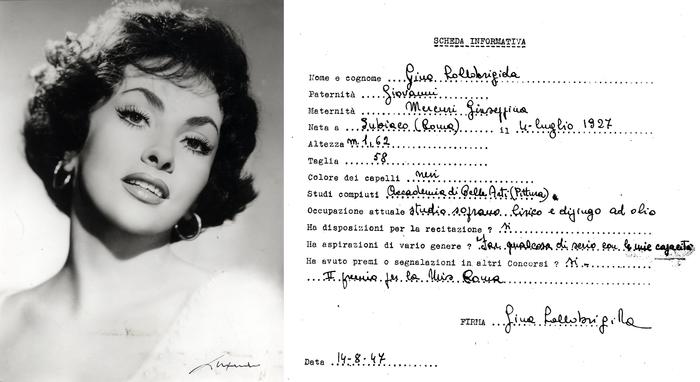 SCHEDA INFORMATIVA
Nome e cognome .... Gina Lollobrigida
Paternità .... Giovanni
Maternità .... Mercuri Giuseppina
Nata a .... Subiaco (Roma) .... il 4 luglio 1927
Altezza m. 1,62
Taglia .... 58
Colore dei capelli .... neri
Studi compiuti Accademia di Belle Arti (Pittura).
Occupazione attuale studio soprano lirico e dipingo ad olio
Ha disposizioni per la recitazione ? si
Ha aspirazioni di vario genere ? Far qualcosa di serio con le mie capacità
Ha avuto premi o segnalazioni in altri Concorsi ? Si -
II premio per la Miss Roma
FIRMA Gina Lollobrigida
Data 14-8-47